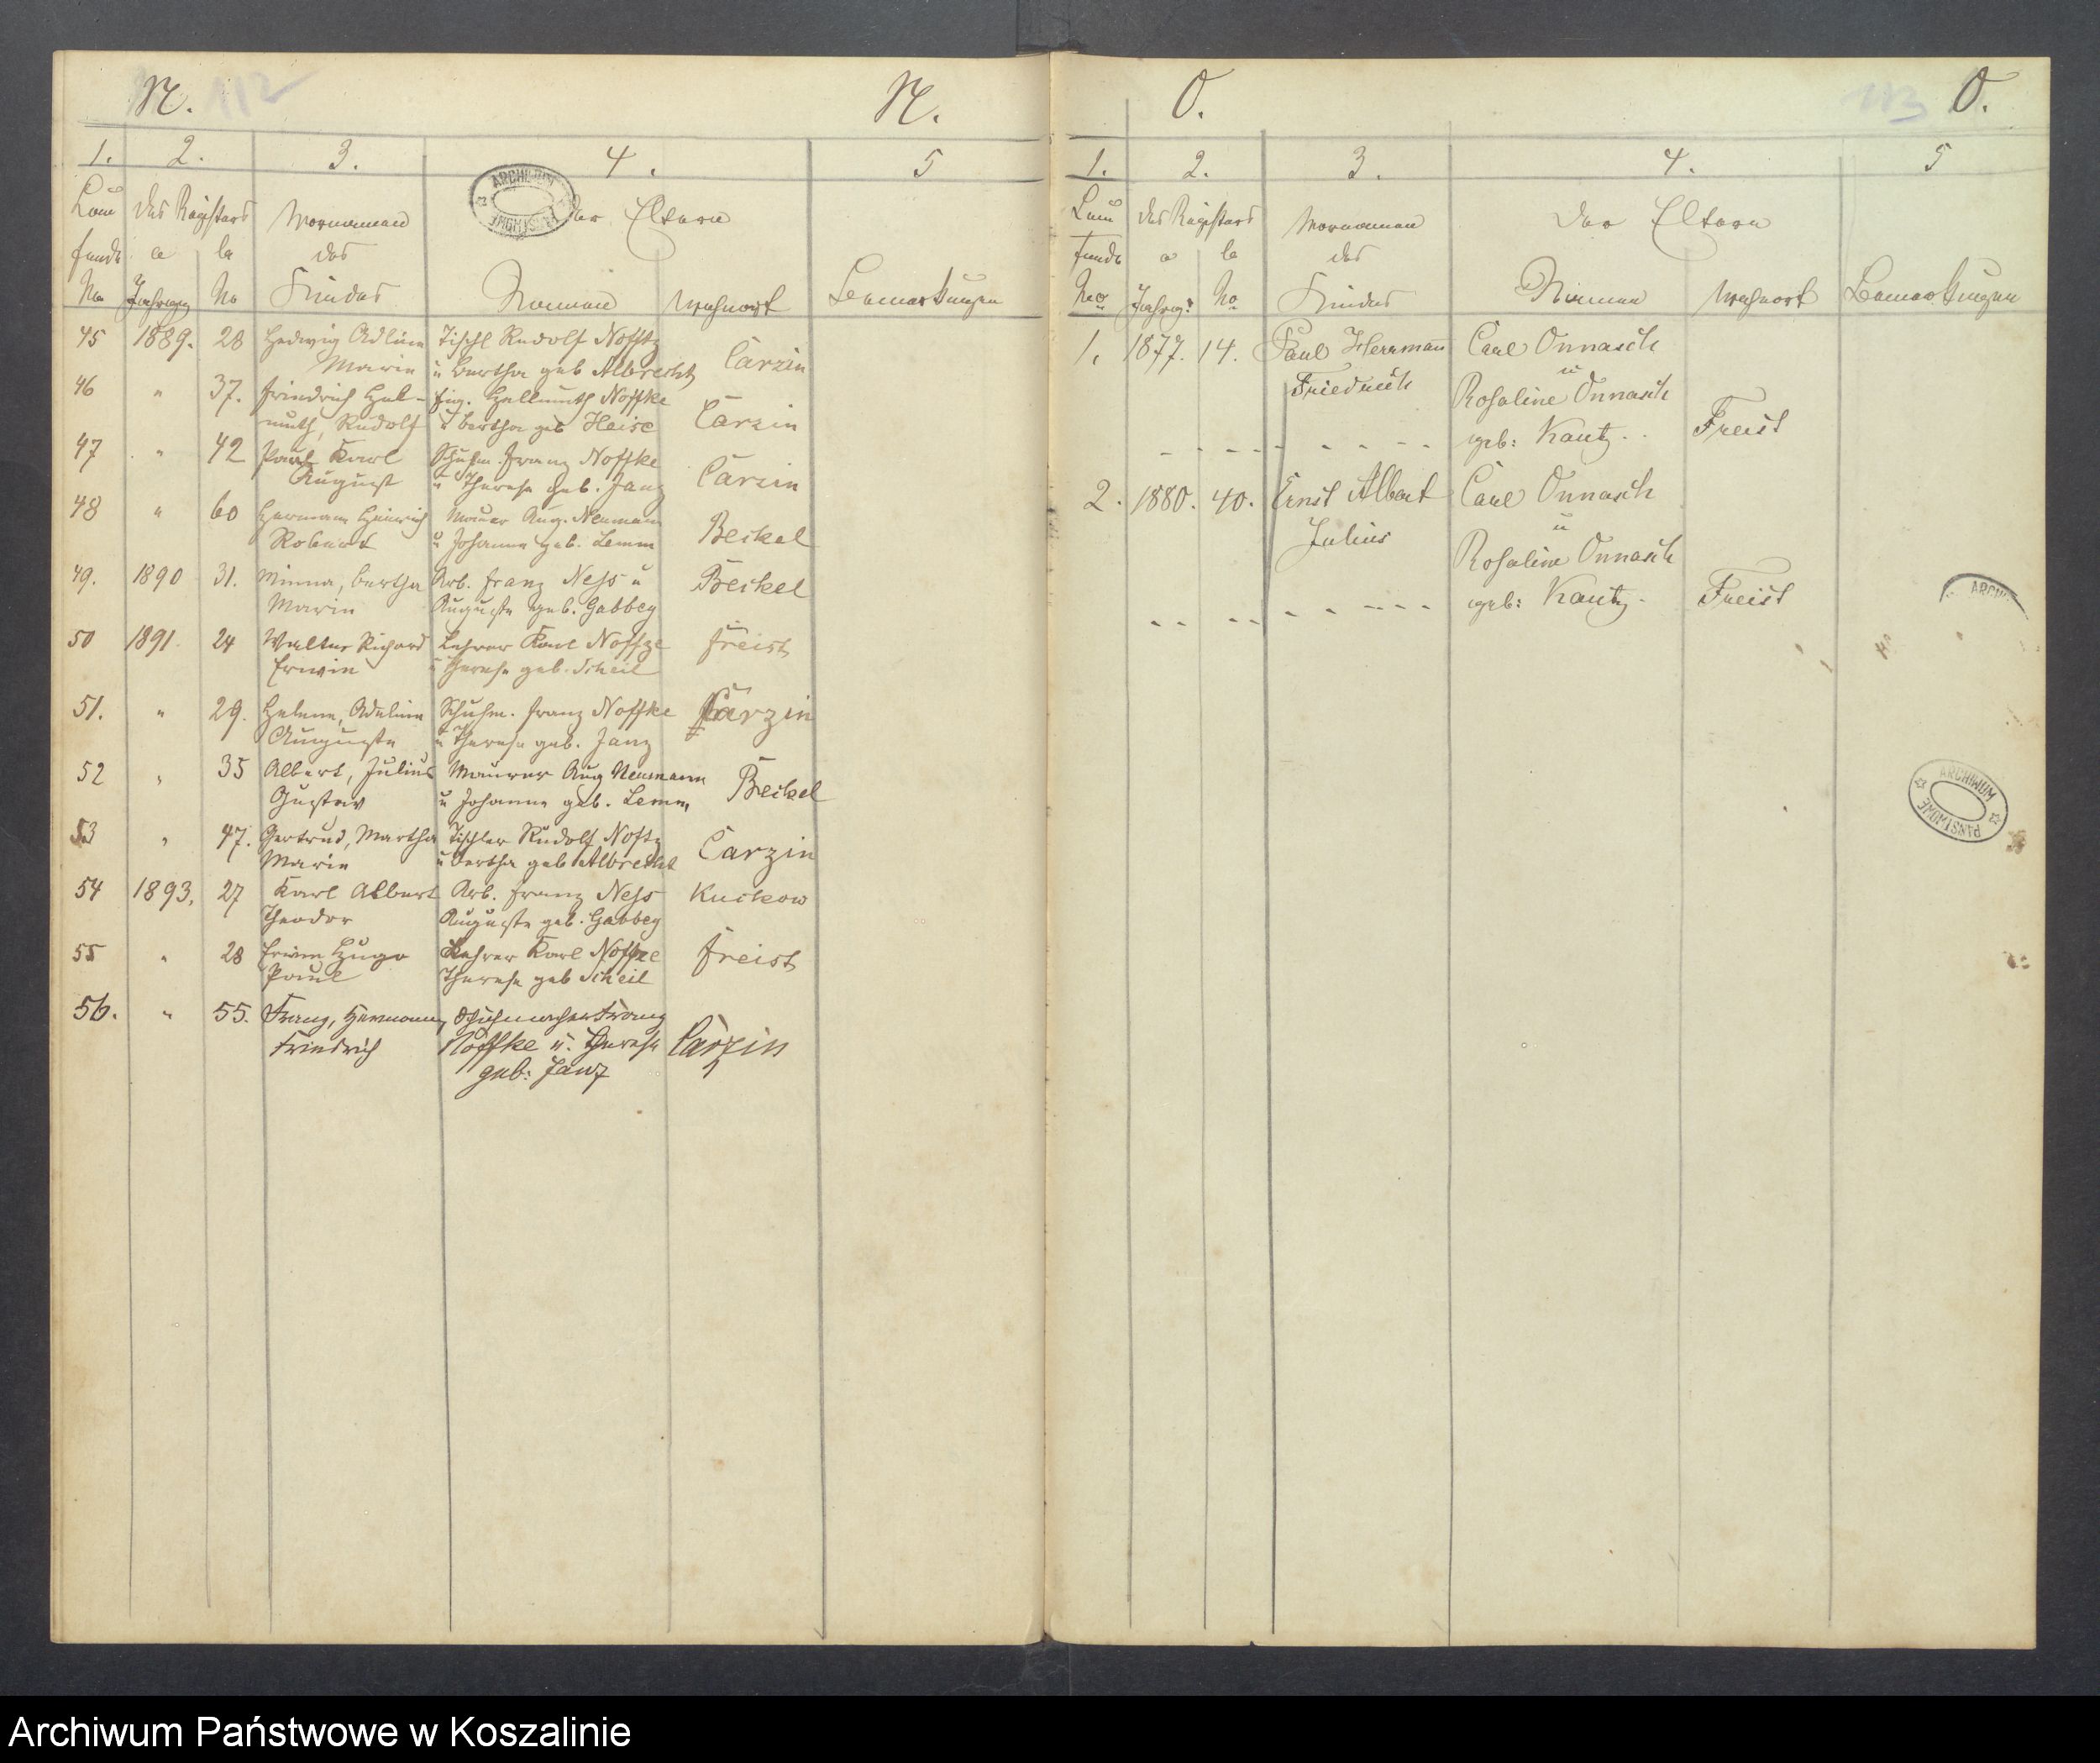 N. 112 N.
1. 2. 3. 4. 5
Lau des Registers Vornamen der Eltern
fende a b des
No Jahrgang No Kindes Namen Wohnort Bemerkungen
45 1889. 28 Hedwig Adline Tischl Rudolf Nofftz
Marie u Bertha geb Albrecht Carzin
46 " 37. Friedrich Hel- Eig. Hellmuth Noffke
muth, Rudolf u Bertha geb Heise Carzin
47 " 42 Paul Karl Schuhm. Franz Noffke
August u Therese geb. Janz Carzin
48 " 60 Hermann Heinrich Maurer Aug. Neumann
Robert u Johanne geb. Lemm Beckel
49. 1890 31. Minna, Bertha Arb. Franz Ness u Beckel
Marie Auguste geb. Gabbey
50 1891. 24 Walter Richard Lehrer Karl Noffze Freist
Erwin u Therese geb. Scheil
51. " 29. Helene, Adeline Schuhm. Franz Noffke Carzin
Auguste u Therese geb. Janz
52 " 35 Albert, Julius Maurer Aug Neumann
Gustav u Johanne geb. Lemm, Beckel
53 " 47. Gertrud, Martha Tischler Rudolf Noftz
Marie u Bertha geb Albrecht Carzin
54 1893. 27 Karl Albert Arb. Franz Ness Kuckow
Theodor Auguste geb. Gabbey
55 " 28 Erwin Hugo Lehrer Karl Noffze Freist
Paul Therese geb Scheil
56. " 55. Franz, Hermann, Schuhmacher Franz
Friedrich Noffke u. Therese Carzin
geb: Janz
O. 113 O.
1. 2. 3. 4. 5
Lau des Registers Vornamen der Eltern
fende a b des
No Jahrg: No Kindes Namen Wohnort Bemerkungen
1. 1877. 14. Paul Herrmann Carl Onnasch
Friedrich u
Rosaline Onnasch
geb: Kautz. Freist
2. 1880. 40. Ernst Albert Carl Onnasch
Julius u
Rosaline Onnasch
geb: Kautz. Freist
ARCHIWUM
PAŃSTWOWE
ARCHIW
ARCHIWUM
PAŃSTWOWE
Archiwum Państwowe w Koszalinie